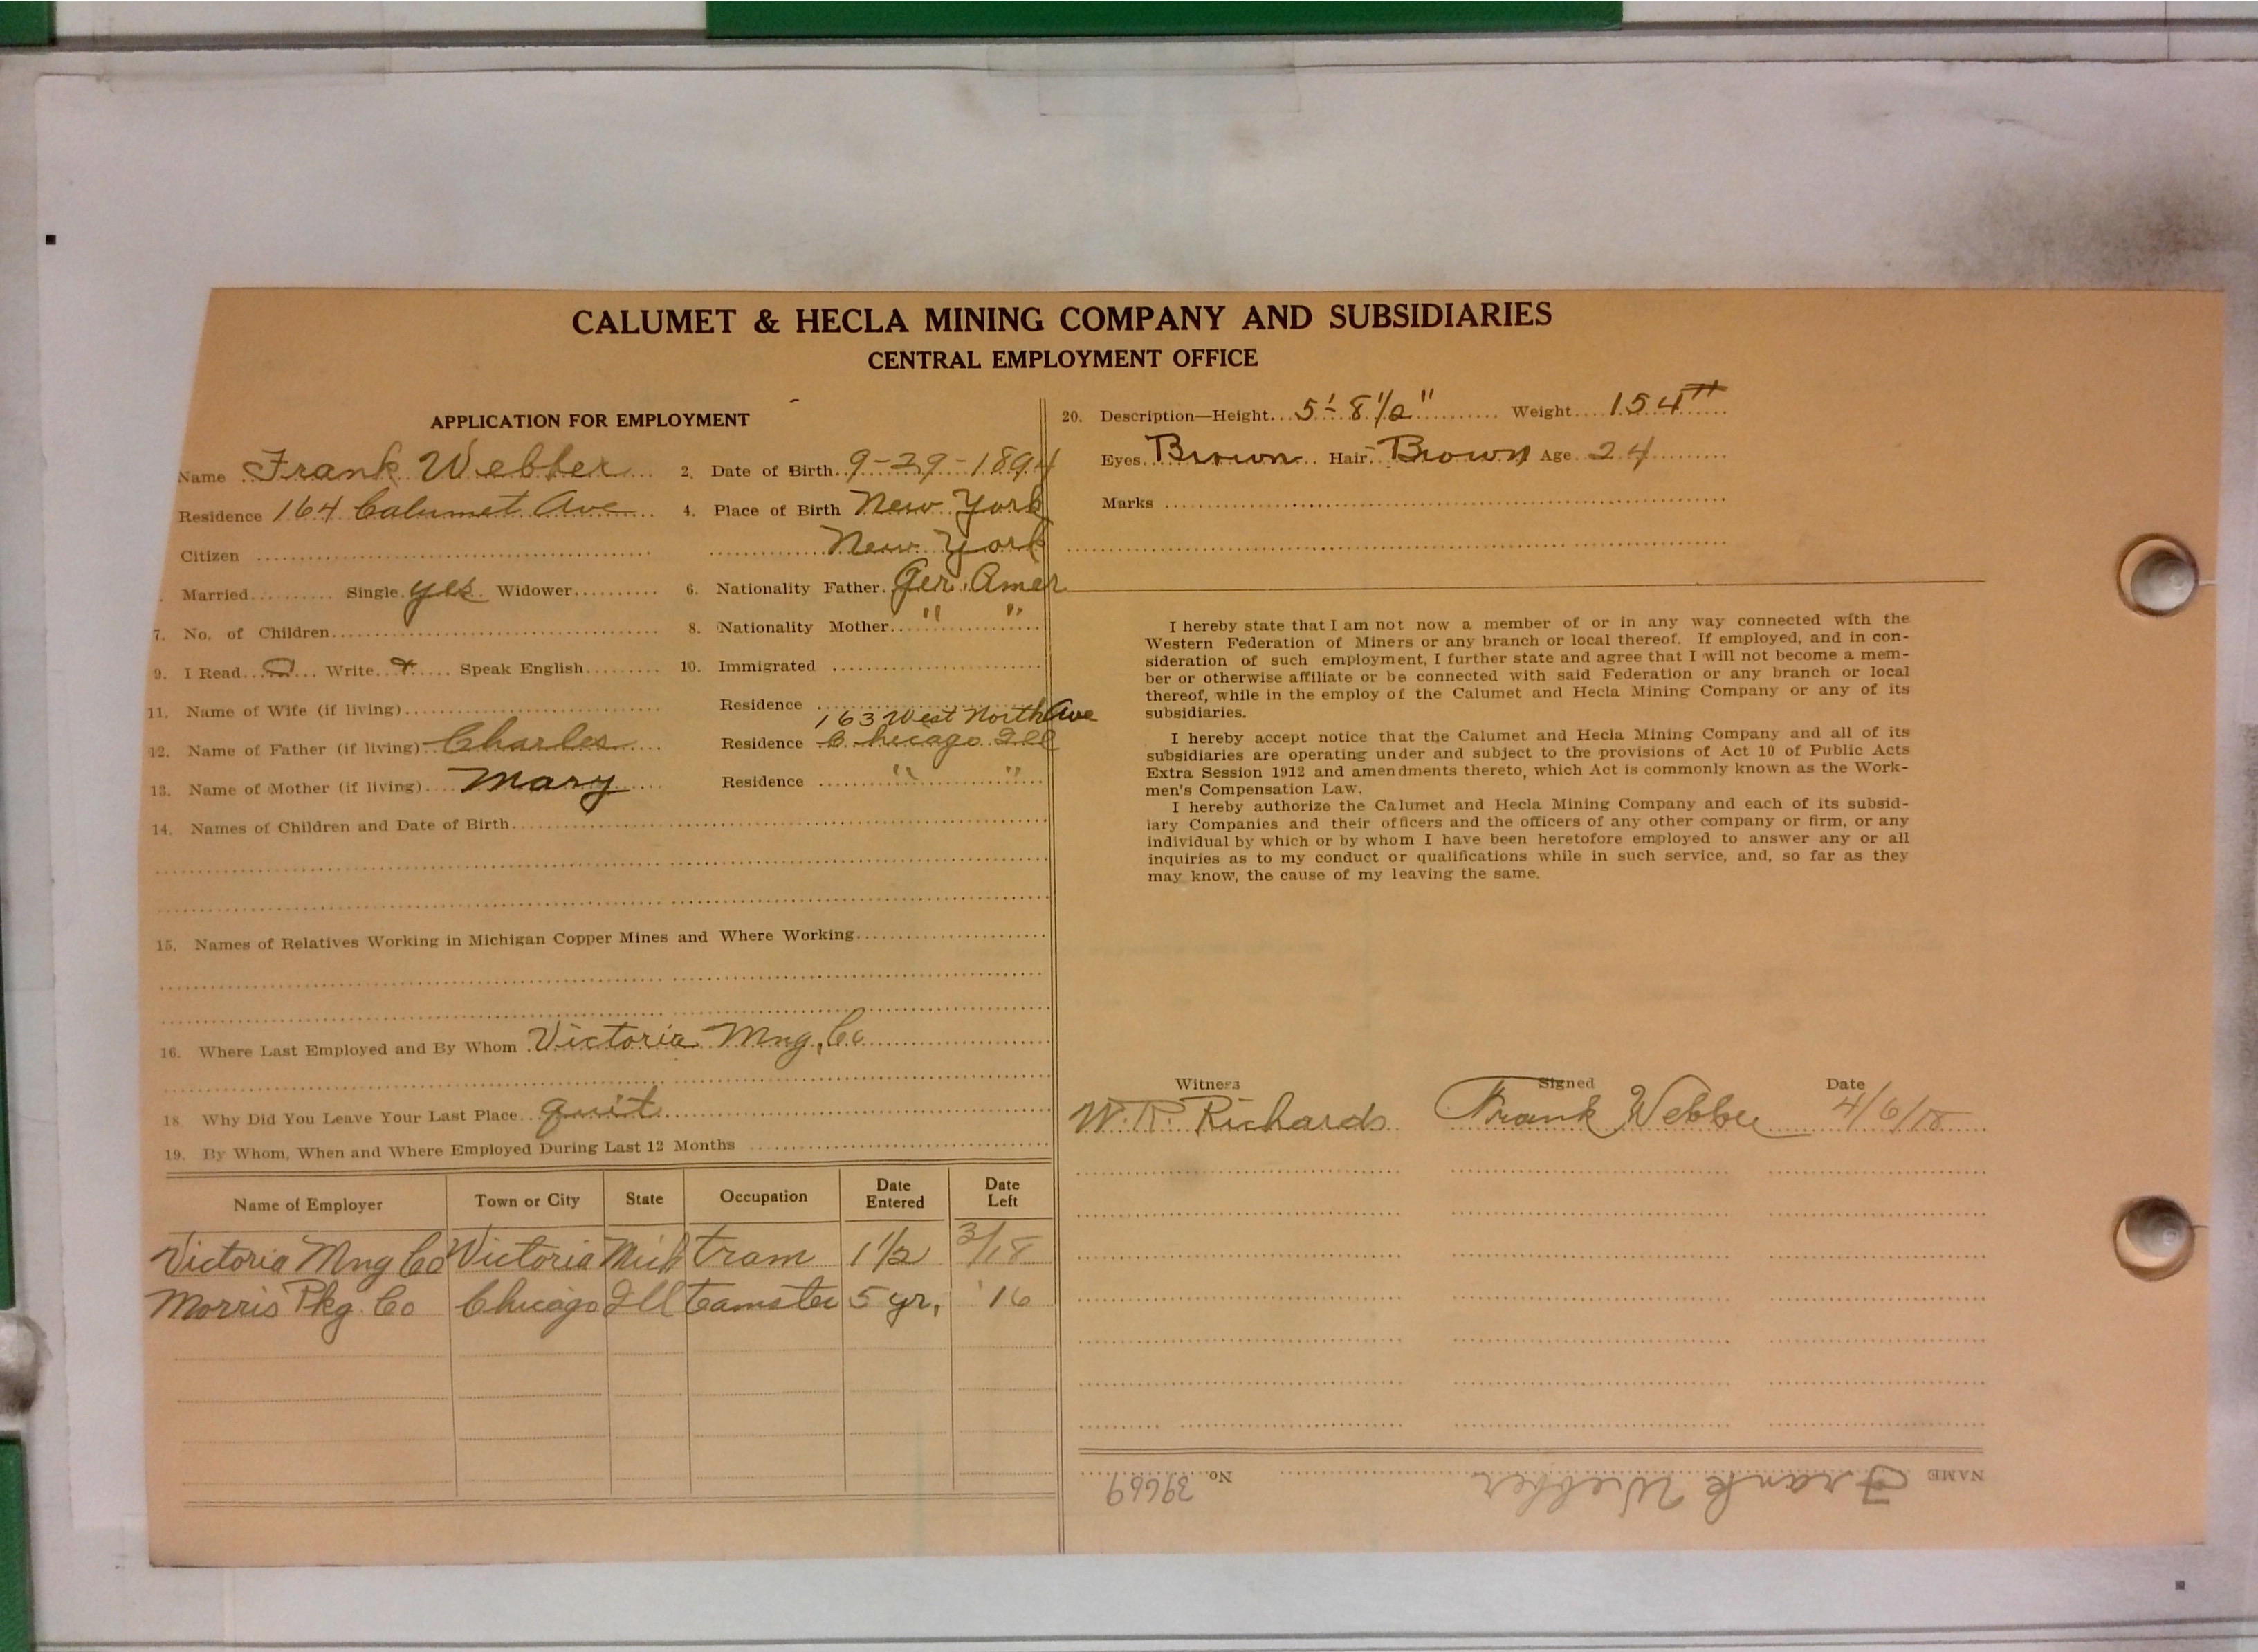 CALUMET & HECLA MINING COMPANY AND SUBSIDIARIES
CENTRAL EMPLOYMENT OFFICE
APPLICATION FOR EMPLOYMENT
Name Frank Webber 2. Date of Birth 9-29-1894
Residence 164 Calumet Ave 4. Place of Birth New York
Citizen New York
Married Single yes Widower 6. Nationality Father Ger. Amer
7. No. of Children 8. Nationality Mother " "
9. I Read Write Speak English 10. Immigrated
11. Name of Wife (if living) Residence
163 West North Ave
12. Name of Father (if living) Charles Residence Chicago Ill
13. Name of Mother (if living) Mary Residence " "
14. Names of Children and Date of Birth
15. Names of Relatives Working in Michigan Copper Mines and Where Working
16. Where Last Employed and By Whom Victoria Mng. Co
18. Why Did You Leave Your Last Place quit
19. By Whom, When and Where Employed During Last 12 Months
Name of Employer Town or City State Occupation Date Entered Date Left
Victoria Mng Co Victoria Mich tram 1 1/2 3/18
Morris Pkg. Co Chicago Ill teamster 5 yr, '16
20. Description—Height 5'-8 1/2" Weight 154#
Eyes Brown Hair Brown Age 24
Marks
I hereby state that I am not now a member of or in any way connected with the
Western Federation of Miners or any branch or local thereof. If employed, and in con-
sideration of such employment, I further state and agree that I will not become a mem-
ber or otherwise affiliate or be connected with said Federation or any branch or local
thereof, while in the employ of the Calumet and Hecla Mining Company or any of its
subsidiaries.
I hereby accept notice that the Calumet and Hecla Mining Company and all of its
subsidiaries are operating under and subject to the provisions of Act 10 of Public Acts
Extra Session 1912 and amendments thereto, which Act is commonly known as the Work-
men's Compensation Law.
I hereby authorize the Calumet and Hecla Mining Company and each of its subsid-
iary Companies and their officers and the officers of any other company or firm, or any
individual by which or by whom I have been heretofore employed to answer any or all
inquiries as to my conduct or qualifications while in such service, and, so far as they
may know, the cause of my leaving the same.
Witness Signed Date
W. R. Richards Frank Webber 4/6/18
NAME Frank Webber No. 39669